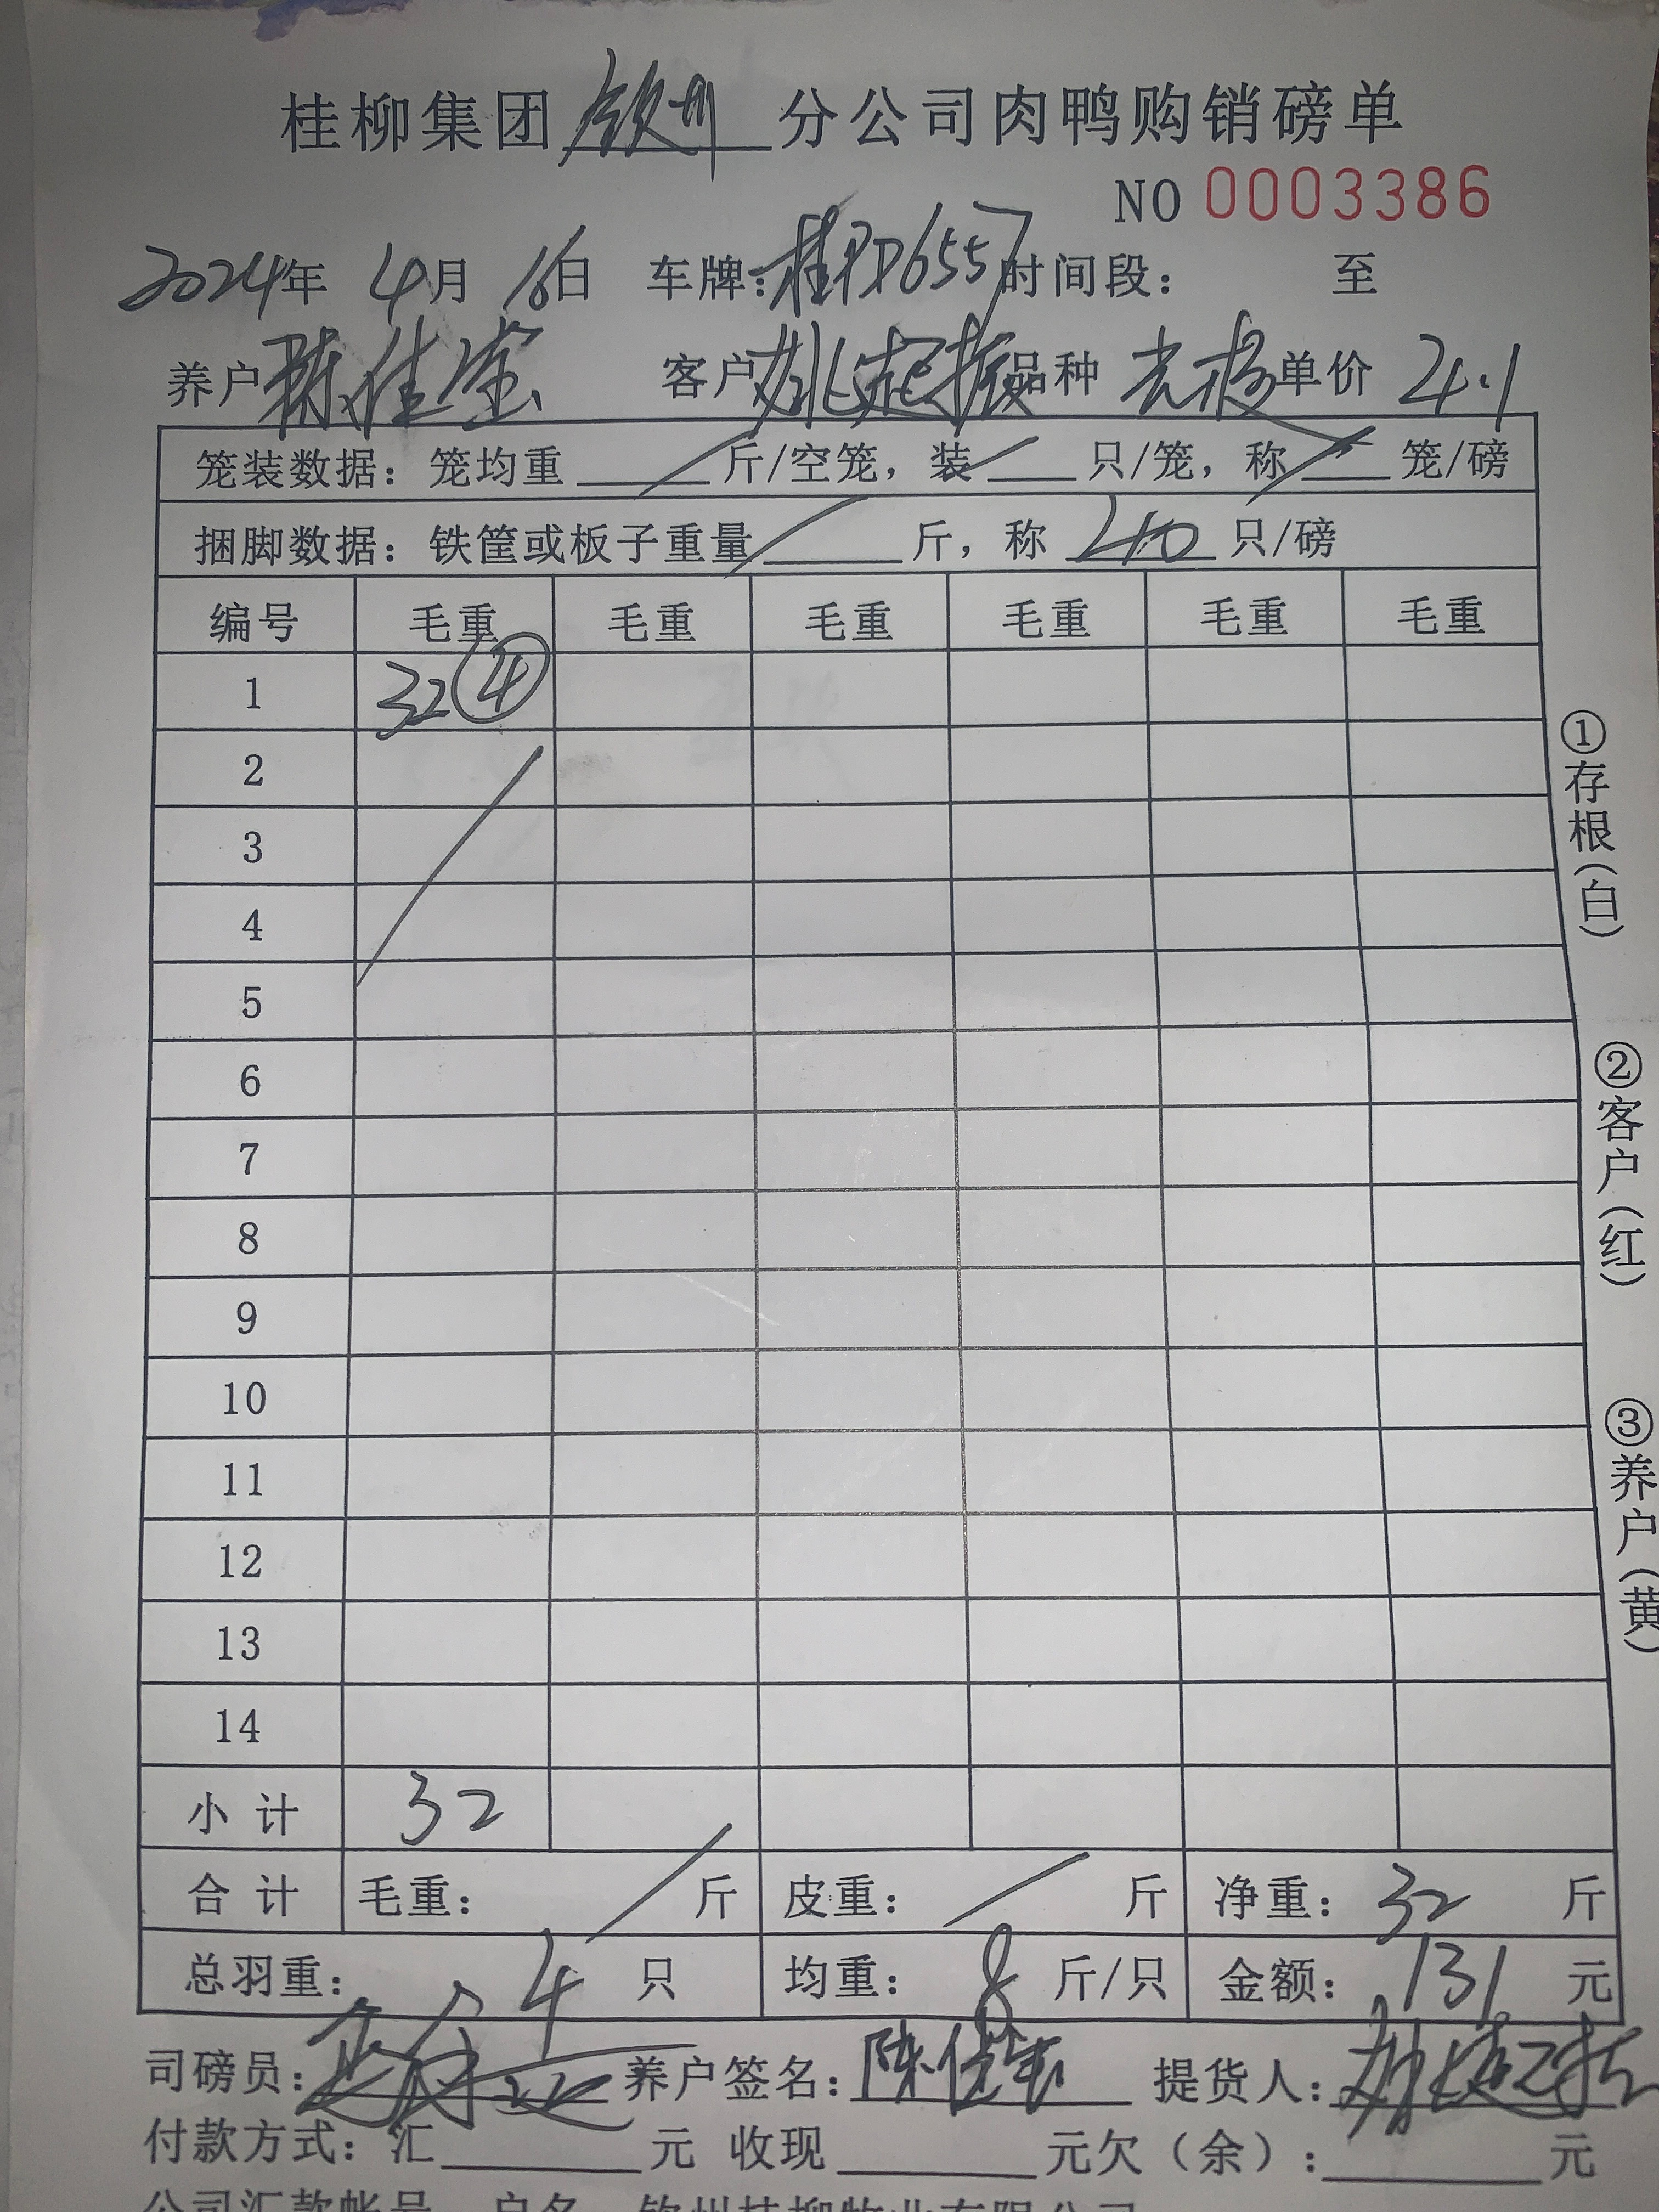 桂柳集团钦州分公司肉鸭购销磅单
NO 0003386
2024年 4月 16日 车牌:桂PD6557 时间段: 至
养户 陈佳宝 客户 姚起振 品种 单价 4.1
笼装数据:笼均重 / 斤/空笼,装 / 只/笼,称 / 笼/磅
捆脚数据:铁筐或板子重量 / 斤,称 40 只/磅
编号 毛重 毛重 毛重 毛重 毛重 毛重
1 32 ④
2
3
4
5
6
7
8
9
10
11
12
13
14
小计 32
合计 毛重: / 斤 皮重: / 斤 净重: 32 斤
总羽重: 4 只 均重: 8 斤/只 金额: 131 元
司磅员: 养户签名:陈佳宝 提货人:姚起振
付款方式:汇 元 收现 元欠(余): 元
公司汇款帐号 户名 钦州桂柳牧业有限公司
①存根(白)
②客户(红)
③养户(黄)